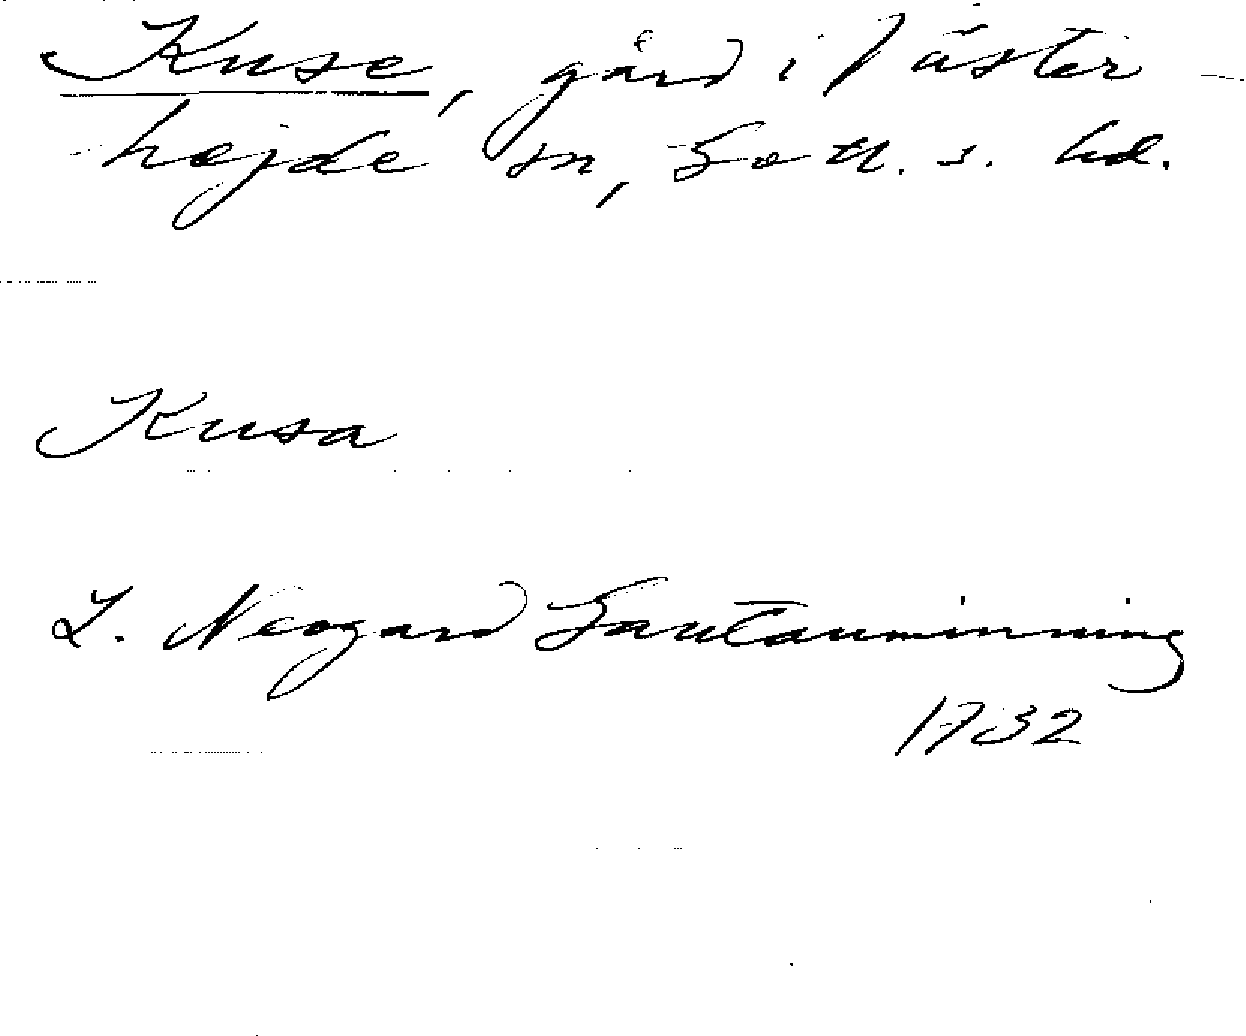 Kuse, gård i Väster-
hejde sn, Gotl. s. hd.
Kusa
L. Neogard Gautauminning
1732